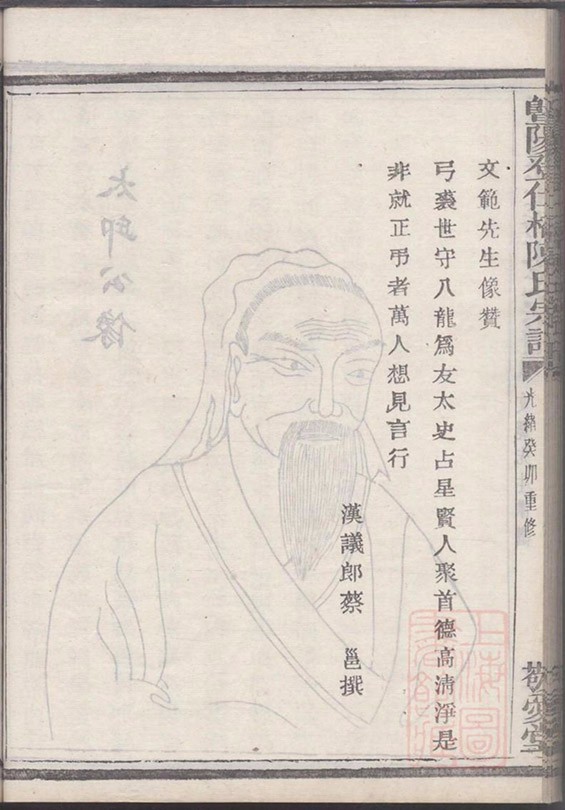 陽
陳氏宗譜
光緒癸卯重修
敬愛堂
文範先生像贊
弓裘世守八龍爲友太史占星賢人聚首德高清淨是
非就正弔者萬人想見言行
漢議郎蔡　邕撰
太邱公像
上海圖